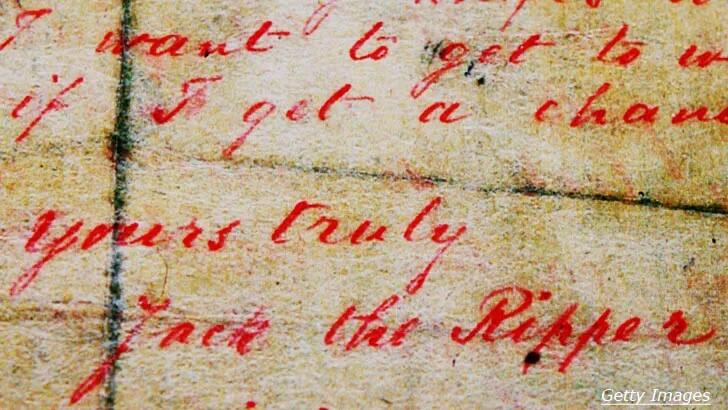 I want to get to w
if I get a chan
yours truly
Jack the Ripper
Getty Images